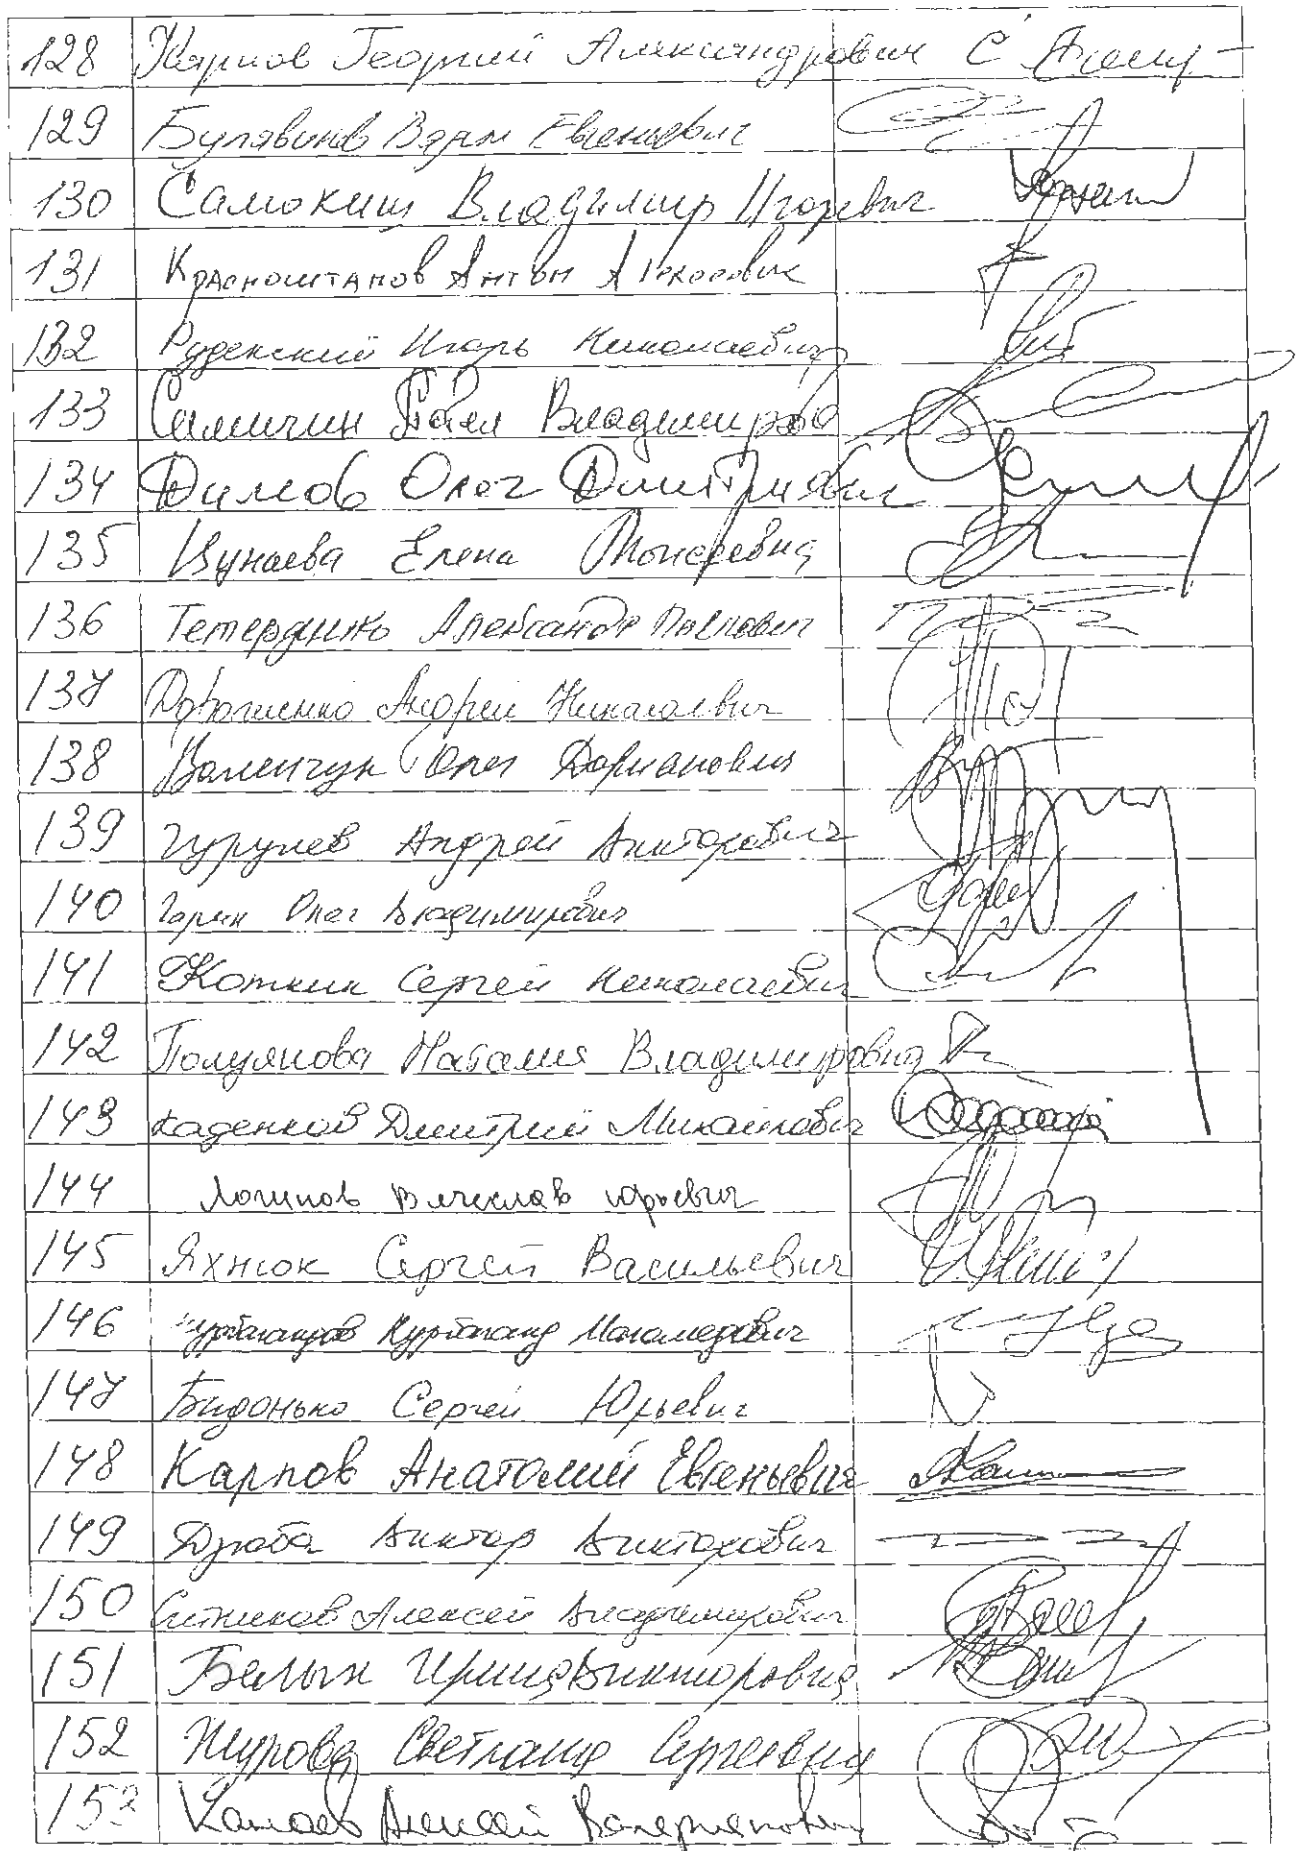 128 Карпов Георгий Александрович
129 Булавинов Вадим Евгеньевич
130 Самокиш Владимир Игоревич
131 Красноштанов Антон Алексеевич
132 Руденский Игорь Николаевич
133 Симигин Павел Владимиров
134 Димов Олег Дмитриевич
135 Цунаева Елена Моисеевна
136 Тетердинко Александр Павлович
137 Дорошенко Андрей Николаевич
138 Валенчук Олег Дорианович
139 Гурулев Андрей Викторович
140 Гарин Олег Владимирович
141 Коткин Сергей Николаевич
142 Полуянова Наталия Владимировна
143 Каденков Дмитрий Михайлович
144 Логинов Вячеслав Юрьевич
145 Яхнюк Сергей Васильевич
146 Курбанов Курбанан Магомедович
147 Бидонько Сергей Юрьевич
148 Карпов Анатолий Евгеньевич
149 Дзюба Виктор Викторович
150 Ситников Алексей Владимирович
151 Белых Ирина Викторовна
152 Журова Светлана Сергеевна
153 Канаев Алексей Валерианович